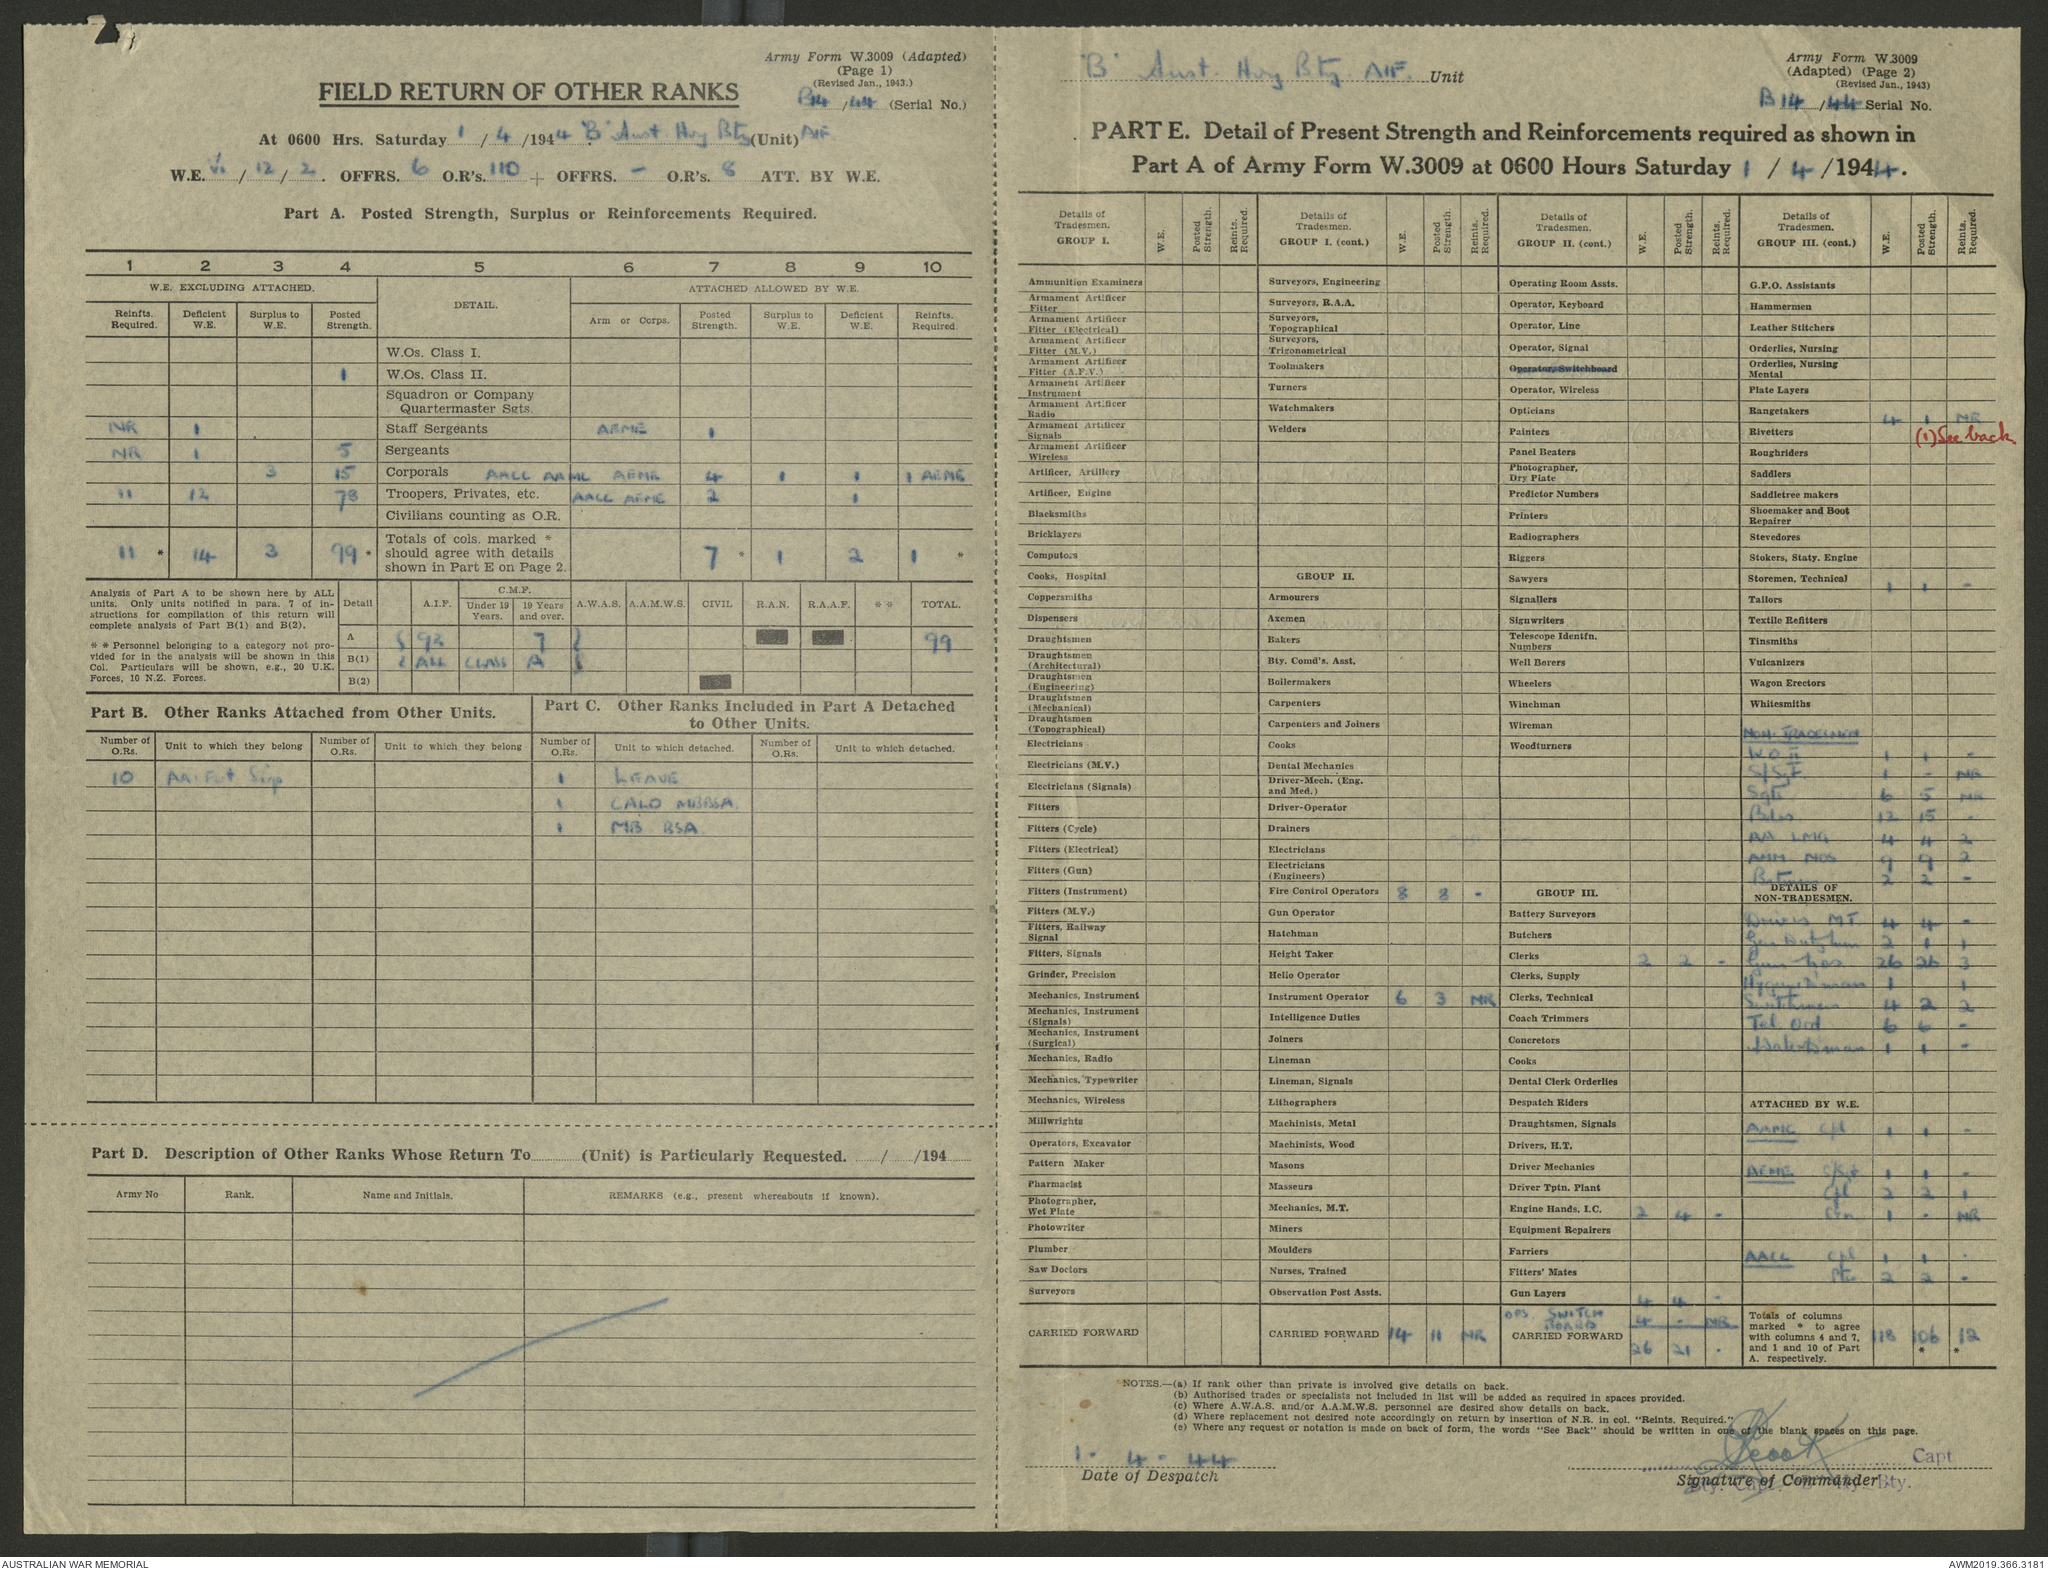 Army Form W.3009 (Adapted)
(Page 1)
(Revised Jan., 1943.)
B14 /44 (Serial No.)
FIELD RETURN OF OTHER RANKS
At 0600 Hrs. Saturday 1 / 4 /1944 "B" Aust. Hvy Bty (Unit) AIF
W.E. VI / 12 / 2. OFFRS. 6 O.R's. 110 + OFFRS. - O.R's. 8 ATT. BY W.E.
Part A. Posted Strength, Surplus or Reinforcements Required.
1 2 3 4 5 6 7 8 9 10
W.E. EXCLUDING ATTACHED. DETAIL. ATTACHED ALLOWED BY W.E.
Reinfts. Required. Deficient W.E. Surplus to W.E. Posted Strength. Arm or Corps. Posted Strength. Surplus to W.E. Deficient W.E. Reinfts. Required.
W.Os. Class I.
1 W.Os. Class II.
Squadron or Company
Quartermaster Sgts.
NR 1 Staff Sergeants AEME 1
NR 1 5 Sergeants
3 15 Corporals AALC AAMC AEME 4 1 1 1 AEME
11 12 78 Troopers, Privates, etc. AACC AEME 2 1
Civilians counting as O.R.
11 * 14 3 99 * Totals of cols. marked * should agree with details shown in Part E on Page 2. 7 * 1 2 1 *
Analysis of Part A to be shown here by ALL units. Only units notified in para. 7 of instructions for compilation of this return will complete analysis of Part B(1) and B(2).
* * Personnel belonging to a category not provided for in the analysis will be shown in this Col. Particulars will be shown, e.g., 20 U.K. Forces, 10 N.Z. Forces.
Detail A.I.F. C.M.F. Under 19 Years. 19 Years and over. A.W.A.S. A.A.M.W.S. CIVIL R.A.N. R.A.A.F. * * TOTAL.
A 92 7 99
B(1) ALL CLASS A
B(2)
Part B. Other Ranks Attached from Other Units.
Part C. Other Ranks Included in Part A Detached to Other Units.
Number of O.Rs. Unit to which they belong Number of O.Rs. Unit to which they belong Number of O.Rs. Unit to which detached. Number of O.Rs. Unit to which detached.
10 Sigs 1 LEAVE
1 CALO MBBSA.
1 MB BSA
Part D. Description of Other Ranks Whose Return To (Unit) is Particularly Requested. / /194
Army No Rank. Name and Initials. REMARKS (e.g., present whereabouts if known).
"B" Aust. Hvy Bty. AIF. Unit
Army Form W.3009
(Adapted) (Page 2)
(Revised Jan., 1943)
B14 /44 Serial No.
PART E. Detail of Present Strength and Reinforcements required as shown in
Part A of Army Form W.3009 at 0600 Hours Saturday 1 / 4 /1944.
Details of Tradesmen. GROUP I. W.E. Posted Strength. Reints. Required.
Ammunition Examiners
Armament Artificer Fitter
Armament Artificer Fitter (Electrical)
Armament Artificer Fitter (M.V.)
Armament Artificer Fitter (A.F.V.)
Armament Artificer Instrument
Armament Artificer Radio
Armament Artificer Signals
Armament Artificer Wireless
Artificer, Artillery
Artificer, Engine
Blacksmiths
Bricklayers
Computors
Cooks, Hospital
Coppersmiths
Dispensers
Draughtsmen
Draughtsmen (Architectural)
Draughtsmen (Engineering)
Draughtsmen (Mechanical)
Draughtsmen (Topographical)
Electricians
Electricians (M.V.)
Electricians (Signals)
Fitters
Fitters (Cycle)
Fitters (Electrical)
Fitters (Gun)
Fitters (Instrument)
Fitters (M.V.)
Fitters, Railway Signal
Fitters, Signals
Grinder, Precision
Mechanics, Instrument
Mechanics, Instrument (Signals)
Mechanics, Instrument (Surgical)
Mechanics, Radio
Mechanics, Typewriter
Mechanics, Wireless
Millwrights
Operators, Excavator
Pattern Maker
Pharmacist
Photographer, Wet Plate
Photowriter
Plumber
Saw Doctors
Surveyors
CARRIED FORWARD
Details of Tradesmen. GROUP I. (cont.) W.E. Posted Strength. Reints. Required.
Surveyors, Engineering
Surveyors, R.A.A.
Surveyors, Topographical
Surveyors, Trigonometrical
Toolmakers
Turners
Watchmakers
Welders
GROUP II.
Armourers
Axemen
Bakers
Bty. Comd's. Asst.
Boilermakers
Carpenters
Carpenters and Joiners
Cooks
Dental Mechanics
Driver-Mech. (Eng. and Med.)
Driver-Operator
Drainers
Electricians
Electricians (Engineers)
Fire Control Operators 8 8 -
Gun Operator
Hatchman
Height Taker
Helio Operator
Instrument Operator 6 3 NR
Intelligence Duties
Joiners
Lineman
Lineman, Signals
Lithographers
Machinists, Metal
Machinists, Wood
Masons
Masseurs
Mechanics, M.T.
Miners
Moulders
Nurses, Trained
Observation Post Assts.
CARRIED FORWARD 14 11 NR
Details of Tradesmen. GROUP II. (cont.) W.E. Posted Strength. Reints. Required.
Operating Room Assts.
Operator, Keyboard
Operator, Line
Operator, Signal
Operator, Switchboard
Operator, Wireless
Opticians
Painters
Panel Beaters
Photographer, Dry Plate
Predictor Numbers
Printers
Radiographers
Riggers
Sawyers
Signallers
Signwriters
Telescope Identfn. Numbers
Well Borers
Wheelers
Winchman
Wireman
Woodturners
GROUP III.
Battery Surveyors
Butchers
Clerks 2 2 -
Clerks, Supply
Clerks, Technical
Coach Trimmers
Concretors
Cooks
Dental Clerk Orderlies
Despatch Riders
Draughtsmen, Signals
Drivers, H.T.
Driver Mechanics
Driver Tptn. Plant
Engine Hands, I.C. 2 4 -
Equipment Repairers
Farriers
Fitters' Mates
Gun Layers 4 4 -
OPS SWITCH BOARD 4 - NR
CARRIED FORWARD 26 21 -
Details of Tradesmen. GROUP III. (cont.) W.E. Posted Strength. Reints. Required.
G.P.O. Assistants
Hammermen
Leather Stitchers
Orderlies, Nursing
Orderlies, Nursing Mental
Plate Layers
Rangetakers 4 1 NR
Rivetters (1) See back
Roughriders
Saddlers
Saddletree makers
Shoemaker and Boot Repairer
Stevedores
Stokers, Staty. Engine
Storemen, Technical 1 1 -
Tailors
Textile Refitters
Tinsmiths
Vulcanizers
Wagon Erectors
Whitesmiths
NON-TRADESMEN
W.O. II 1 1 -
S/Sgt 1 - NR
Sgts 6 5 NR
Bdrs 12 15 -
AA LMG 4 4 2
AMM NOS 9 9 2
Batmen 2 2 -
DETAILS OF NON-TRADESMEN.
Drivers M.T. 4 4 -
Gen Dutyman 2 1 1
Gun Nos 26 26 3
Hygiene man 1 1
4 2 2
Tel. Ord 6 6 -
1 1 -
ATTACHED BY W.E.
AAMC Cpl 1 1 -
AEME S/Sgt 1 1 -
Cpl 2 2 1
1 - NR
AACC Cpl 1 1 -
Pte 2 2 -
Totals of columns marked * to agree with columns 4 and 7, and 1 and 10 of Part A. respectively. 118 106 * 12 *
NOTES.—(a) If rank other than private is involved give details on back.
(b) Authorised trades or specialists not included in list will be added as required in spaces provided.
(c) Where A.W.A.S. and/or A.A.M.W.S. personnel are desired show details on back.
(d) Where replacement not desired note accordingly on return by insertion of N.R. in col. "Reints. Required."
(e) Where any request or notation is made on back of form, the words "See Back" should be written in one of the blank spaces on this page.
1 - 4 - 44
Date of Despatch
Capt
Signature of Commander
Bty.
AUSTRALIAN WAR MEMORIAL
AWM2019.366.3181